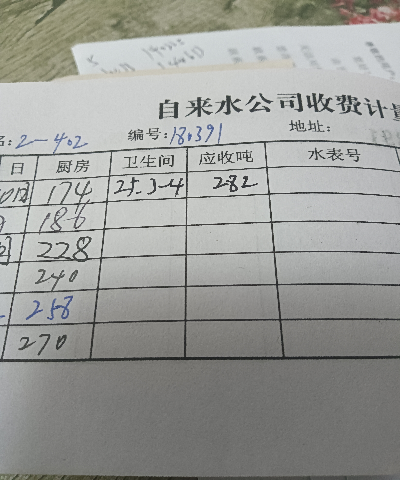 自来水公司收费计
名:2-402 编号:180391 地址:
日 厨房 卫生间 应收吨 水表号
174 25.3-4 282
186
228
240
258
270